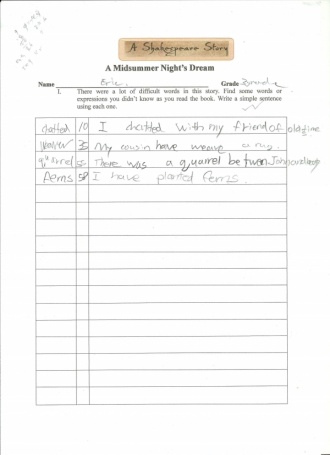 A Shakespeare Story
A Midsummer Night's Dream
Name Eric Grade
I. There were a lot of difficult words in this story. Find some words or
expressions you didn't know as you read the book. Write a simple sentence
using each one.
chatted 10 I chatted with my friend of old time
35 My cousin have weave a rug.
quarrel 55 There was a quarrel between John and
Ferns 58 I have planted ferns.